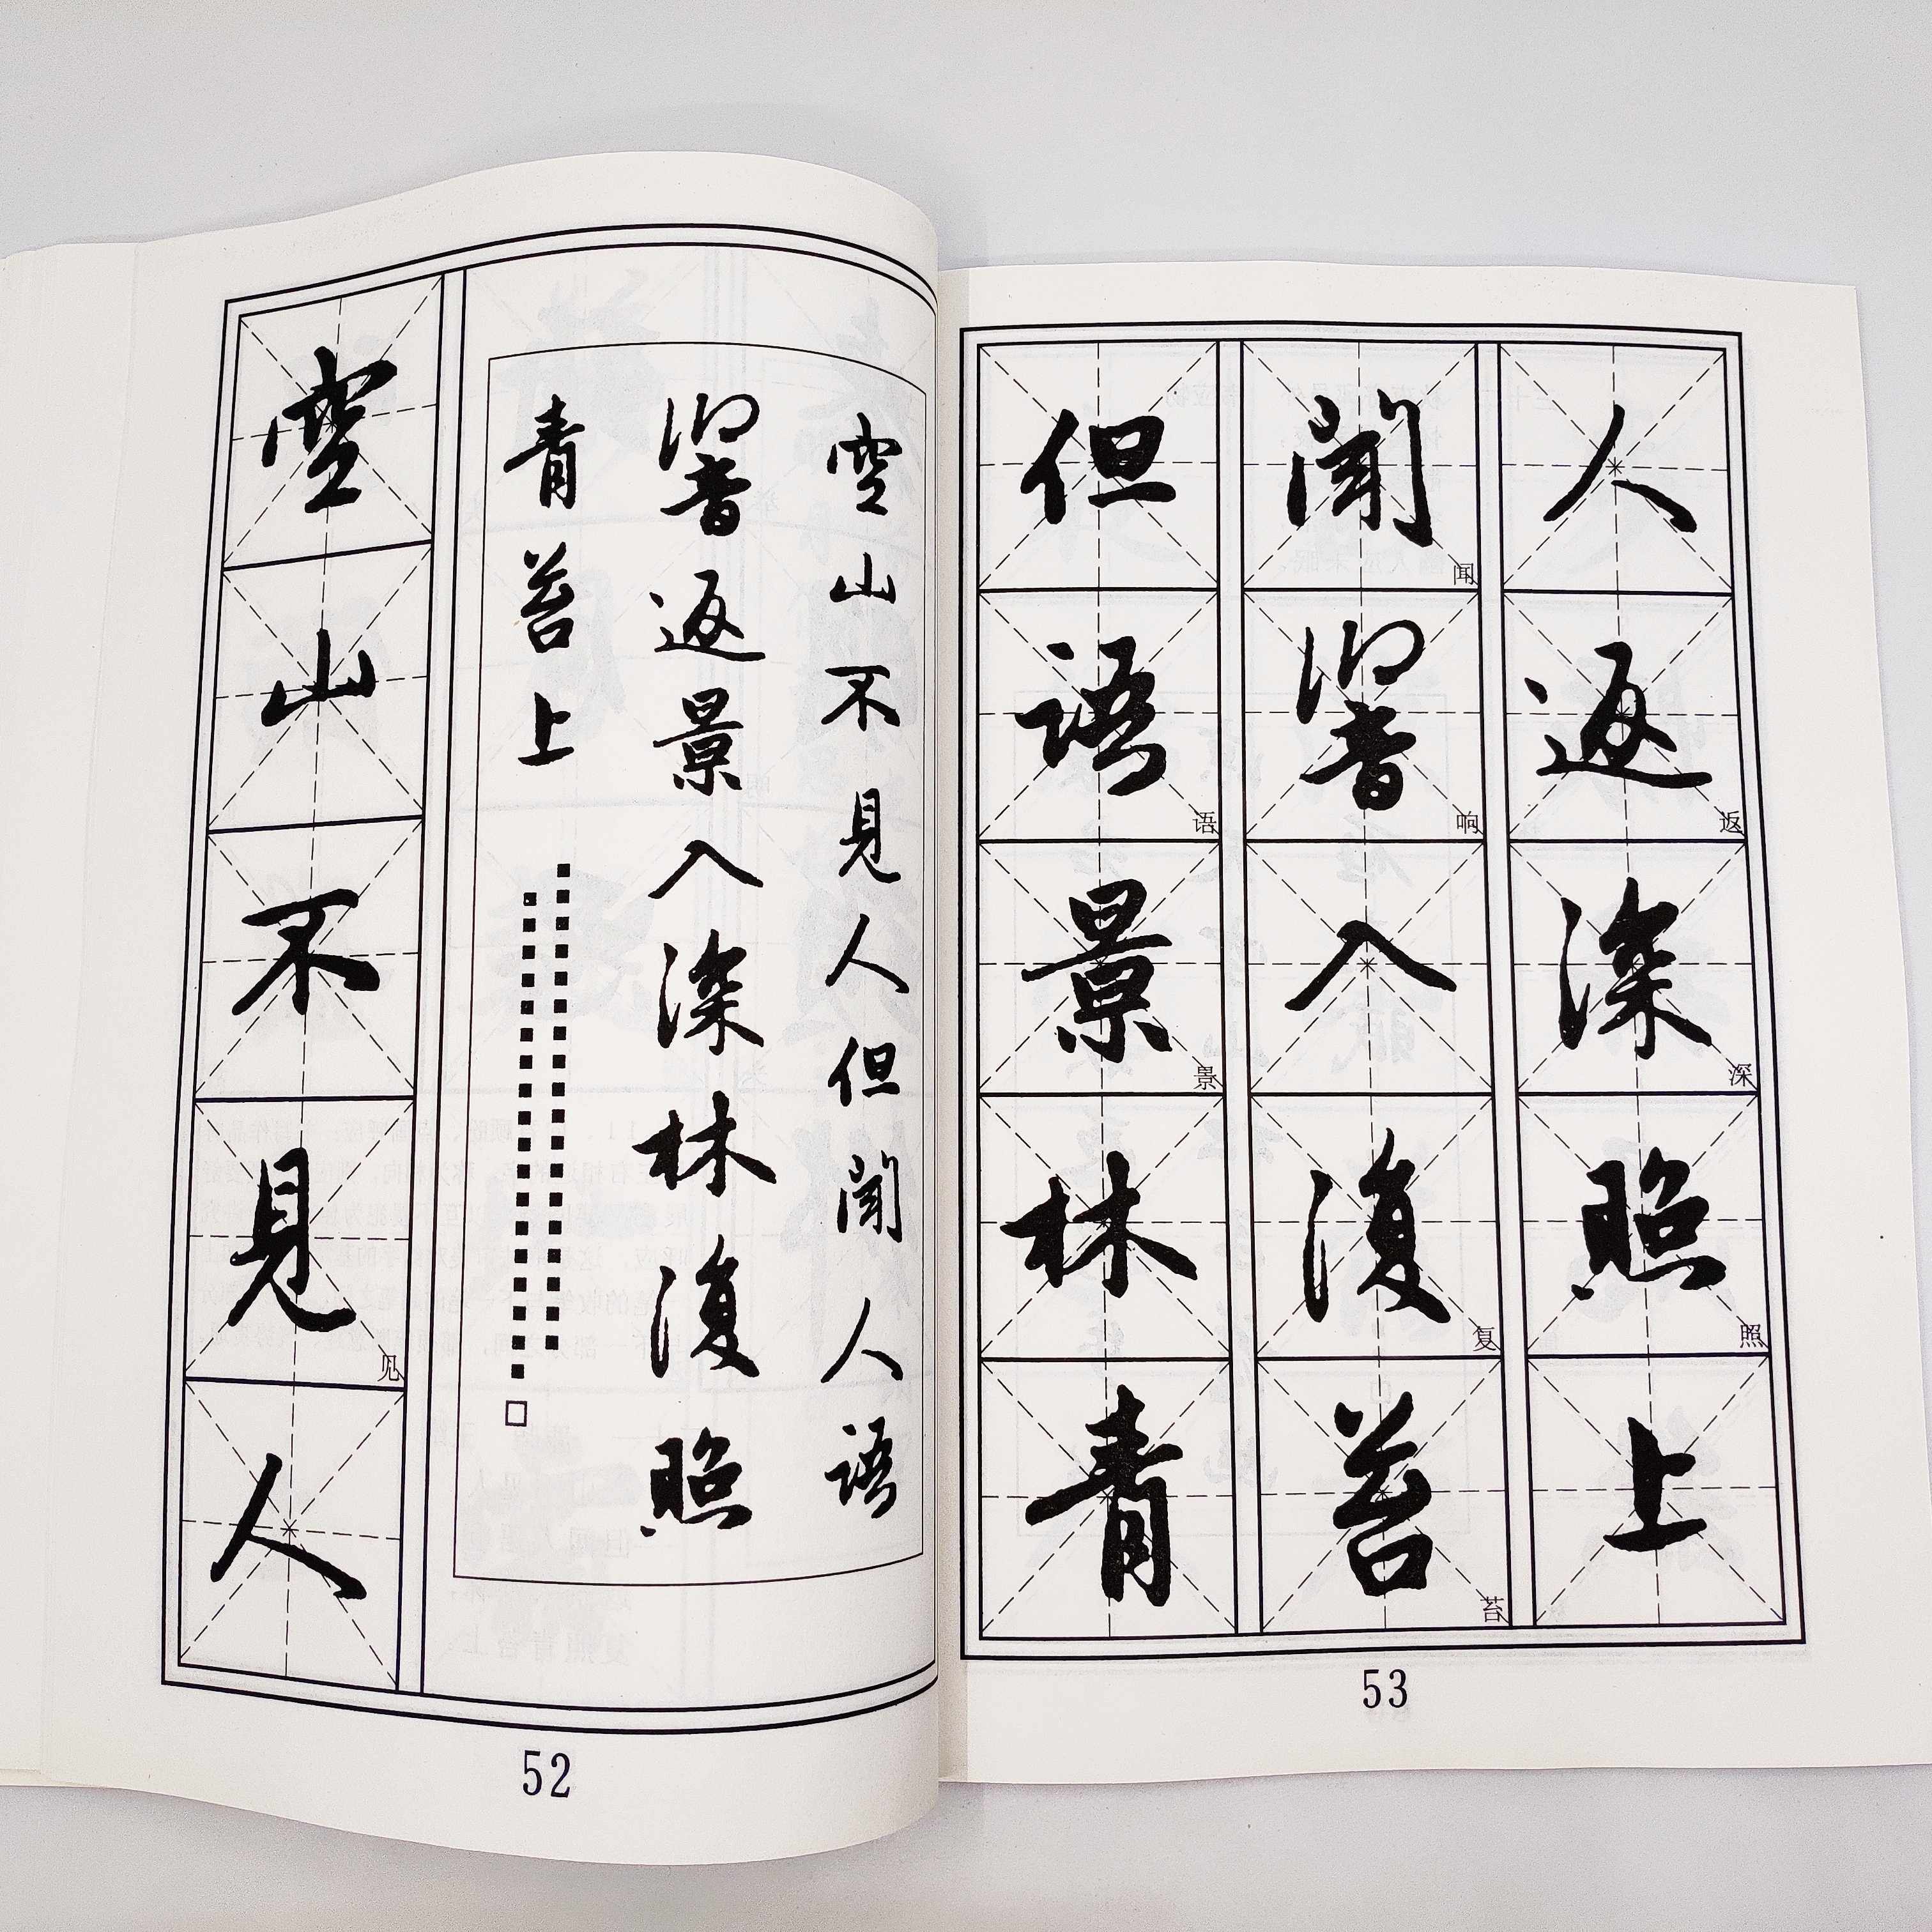 空
山
不
見
见
人
空山不見人但聞人語
響返景入深林復照
青苔上
52
但聞人
闻
語響返
语 响 返
景入深
景 深
林復照
复 照
青苔上
苔
53